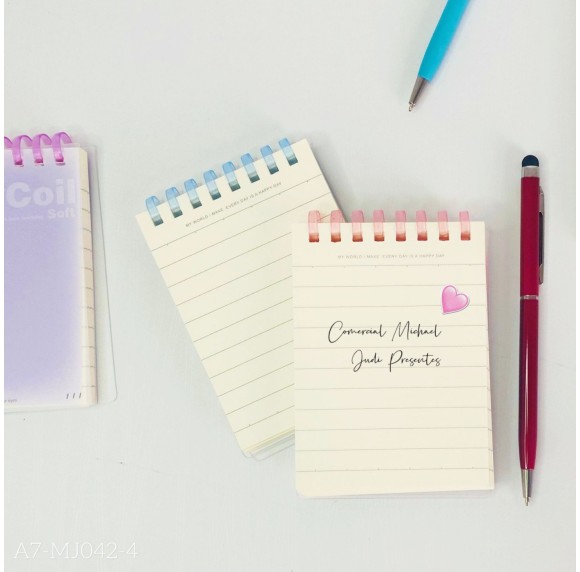 Coil
Soft
MY WORLD I MAKE, EVERY DAY IS A HAPPY DAY.
MY WORLD I MAKE, EVERY DAY IS A HAPPY DAY.
Comercial Michael
Judi Presentes
A7-MJ042-4